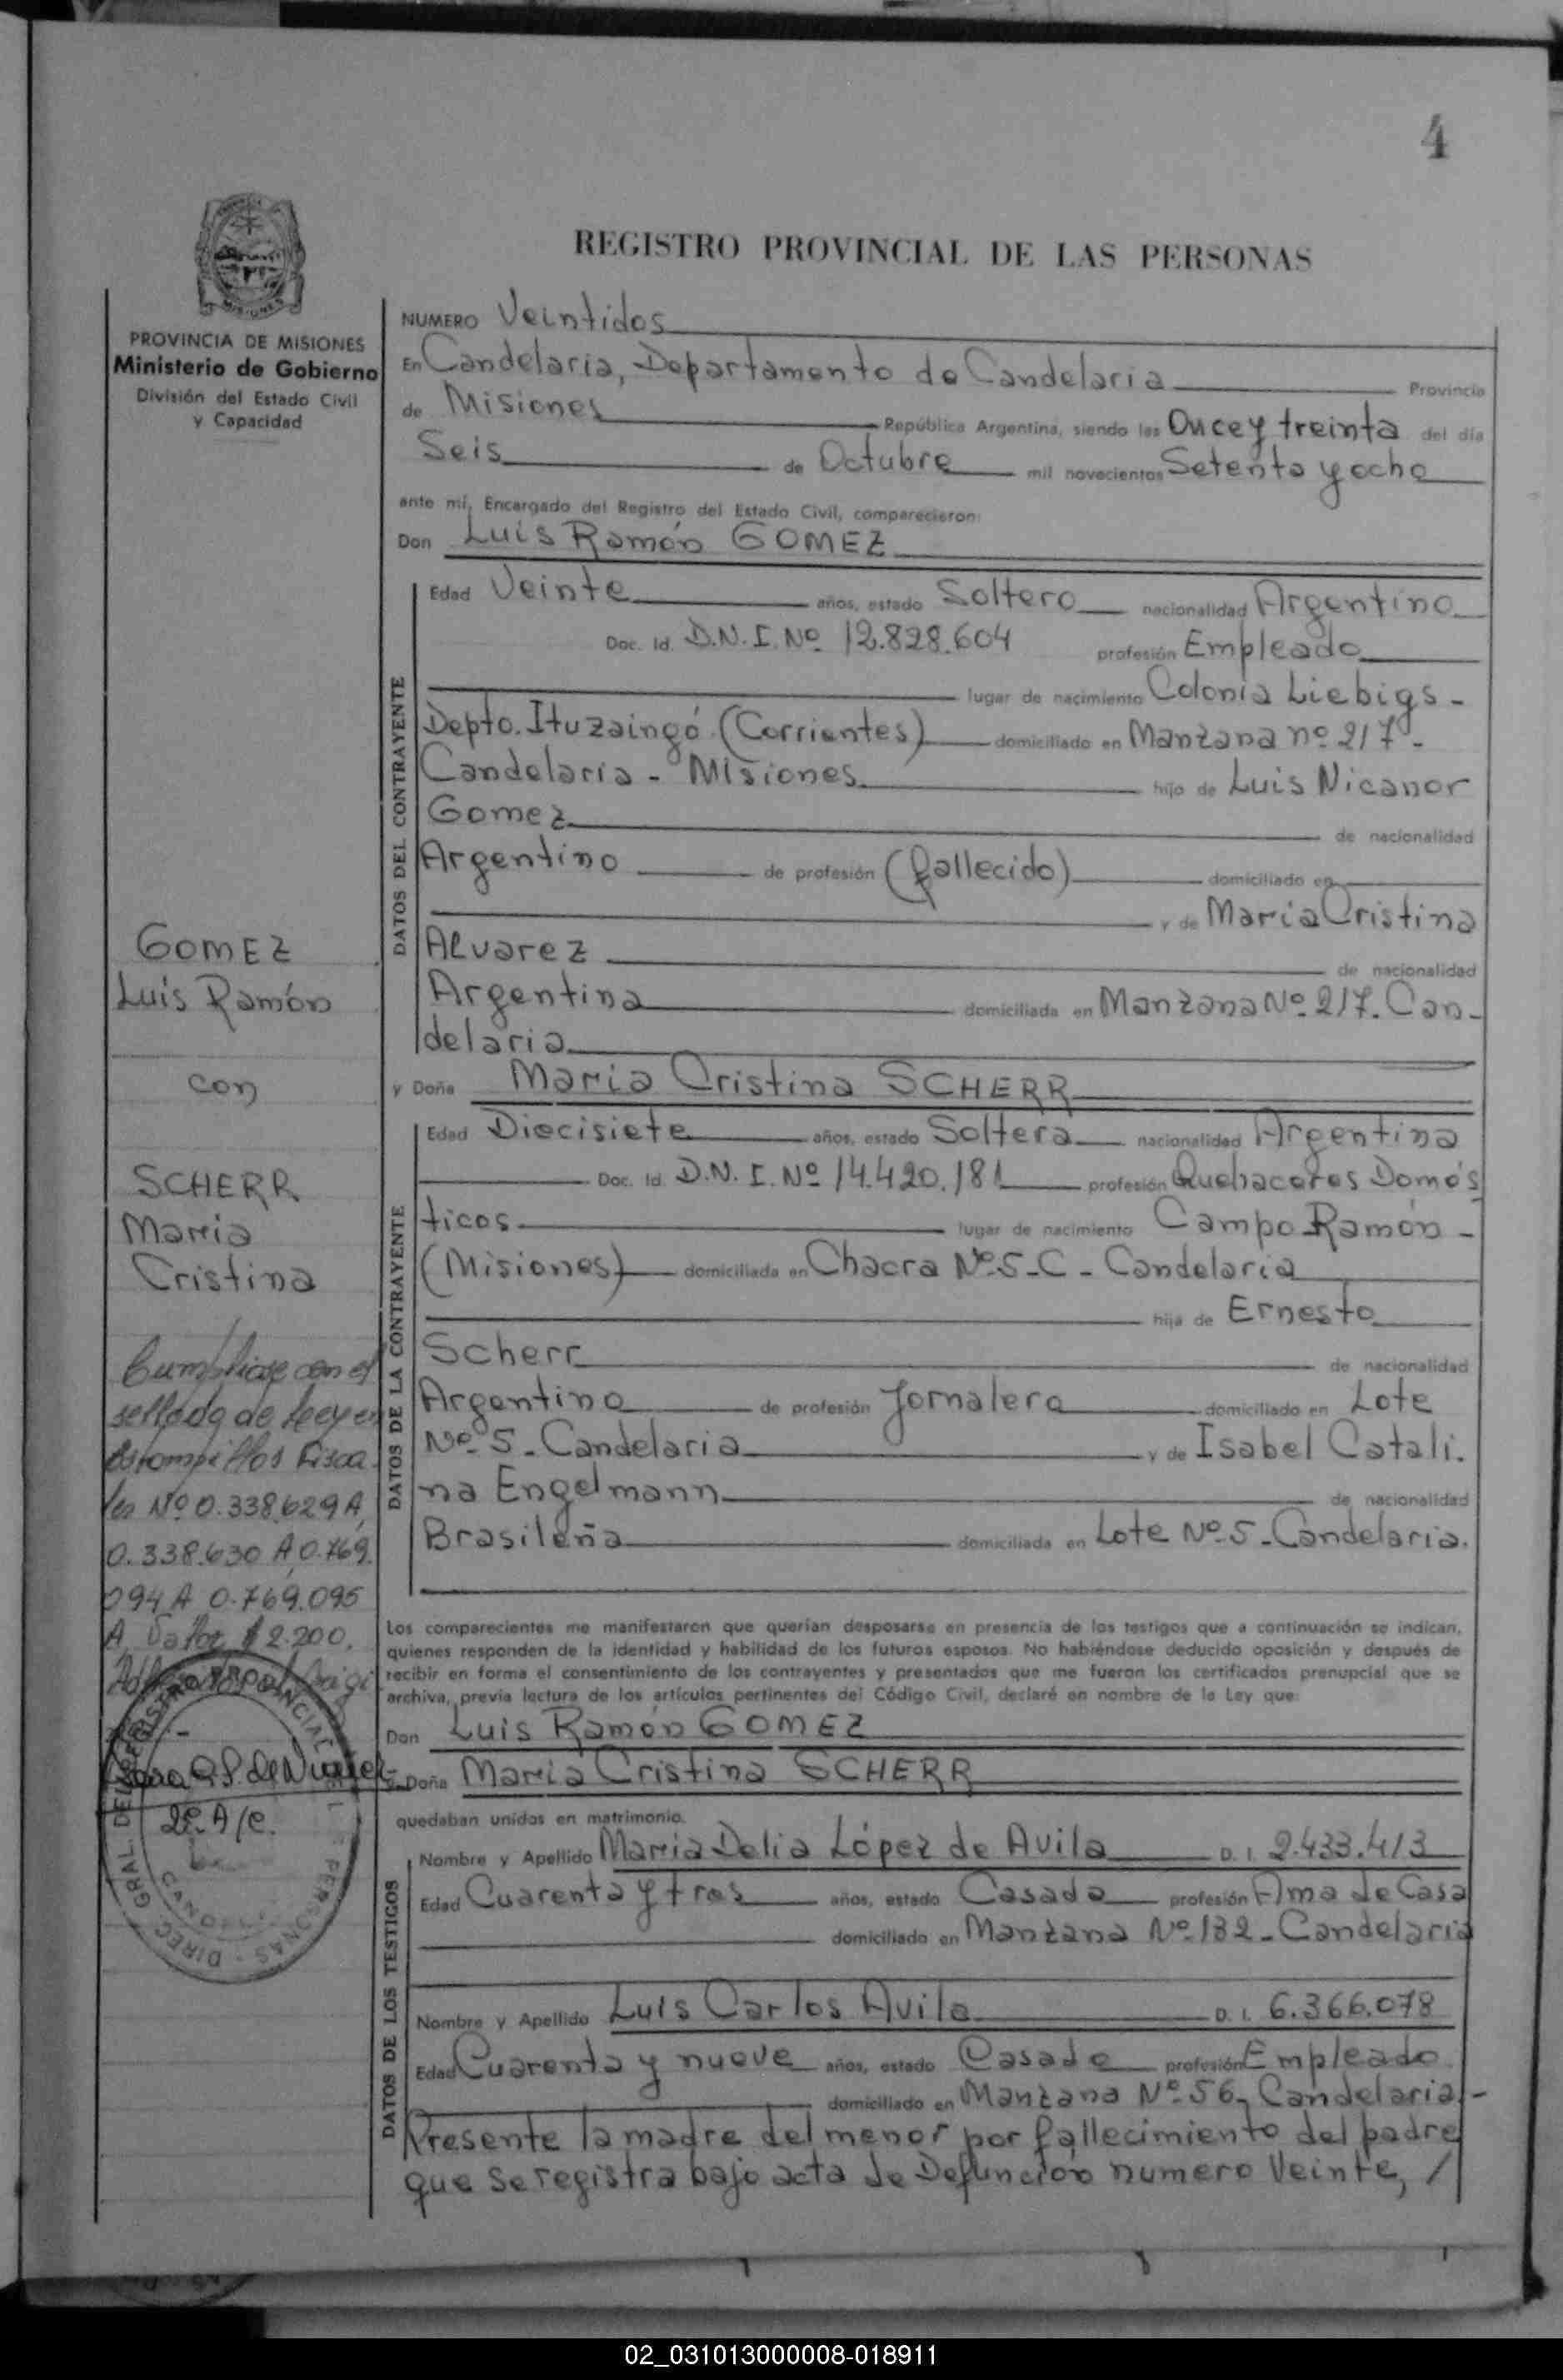 4
REGISTRO PROVINCIAL DE LAS PERSONAS
PROVINCIA DE MISIONES
Ministerio de Gobierno
División del Estado Civil
y Capacidad
NUMERO Veintidos
En Candelaria, Departamento de Candelaria Provincia
de Misiones República Argentina, siendo las Once y treinta del día
Seis de Octubre mil novecientos Setenta y ocho
ante mí, Encargado del Registro del Estado Civil, comparecieron:
Don Luis Ramón GOMEZ
DATOS DEL CONTRAYENTE
Edad Veinte años, estado Soltero nacionalidad Argentino
Doc. Id. D.N.I. Nº 12.828.604 profesión Empleado
lugar de nacimiento Colonia Liebigs -
Depto. Ituzaingó (Corrientes) domiciliado en Manzana nº 217 -
Candelaria - Misiones hijo de Luis Nicanor
Gomez de nacionalidad
Argentino de profesión (fallecido) domiciliado en
y de Maria Cristina
Alvarez de nacionalidad
Argentina domiciliada en Manzana Nº 217. Can-
delaria
y Doña Maria Cristina SCHERR
DATOS DE LA CONTRAYENTE
Edad Diecisiete años, estado Soltera nacionalidad Argentina
Doc. Id. D.N.I. Nº 14.420.181 profesión Quehaceres Domés
ticos lugar de nacimiento Campo Ramón -
(Misiones) domiciliada en Chacra Nº 5-C - Candelaria
hija de Ernesto
Scherr de nacionalidad
Argentino de profesión Jornalero domiciliado en Lote
Nº 5 - Candelaria y de Isabel Catali-
na Engelmann de nacionalidad
Brasileña domiciliada en Lote Nº 5 - Candelaria.
Los comparecientes me manifestaron que querían desposarse en presencia de los testigos que a continuación se indican,
quienes responden de la identidad y habilidad de los futuros esposos. No habiéndose deducido oposición y después de
recibir en forma el consentimiento de los contrayentes y presentados que me fueron los certificados prenupcial que se
archiva, previa lectura de los artículos pertinentes del Código Civil, declaré en nombre de la Ley que:
Don Luis Ramón GOMEZ
y Doña Maria Cristina SCHERR
quedaban unidos en matrimonio.
DATOS DE LOS TESTIGOS
Nombre y Apellido Maria Delia López de Avila D. I. 2.433.413
Edad Cuarenta y tres años, estado Casada profesión Ama de Casa
domiciliado en Manzana Nº 132 - Candelaria
Nombre y Apellido Luis Carlos Avila D. I. 6.366.078
Edad Cuarenta y nueve años, estado Casado profesión Empleado
domiciliado en Manzana Nº 56, Candelaria -
Presente la madre del menor por fallecimiento del padre
que se registra bajo acta de Defunción numero Veinte, /
GOMEZ
Luis Ramón
con
SCHERR
Maria
Cristina
Cumpliose con el
sellado de Ley en
estampillas Fisca-
les Nº 0.338.629 A,
0.338.630 A, 0.769.
094 A 0.769.095
A Valor $ 2.200.
2º A/C.
02_031013000008-018911